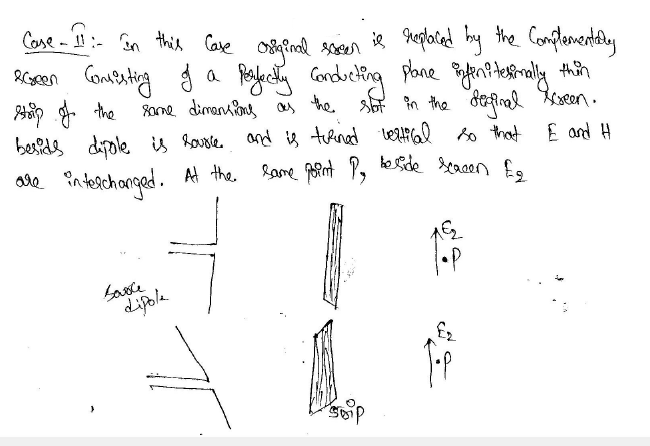 Case - II :- In this Case original screen is replaced by the Complementary
screen Consisting of a Perfectly Conducting plane infinitesimally thin
strip of the same dimensions as the slot in the original screen.
besids dipole is source and is turned vertical so that E and H
are interchanged. At the same point P, beside screen E2
E2
.P
source
dipole
E2
.P
strip